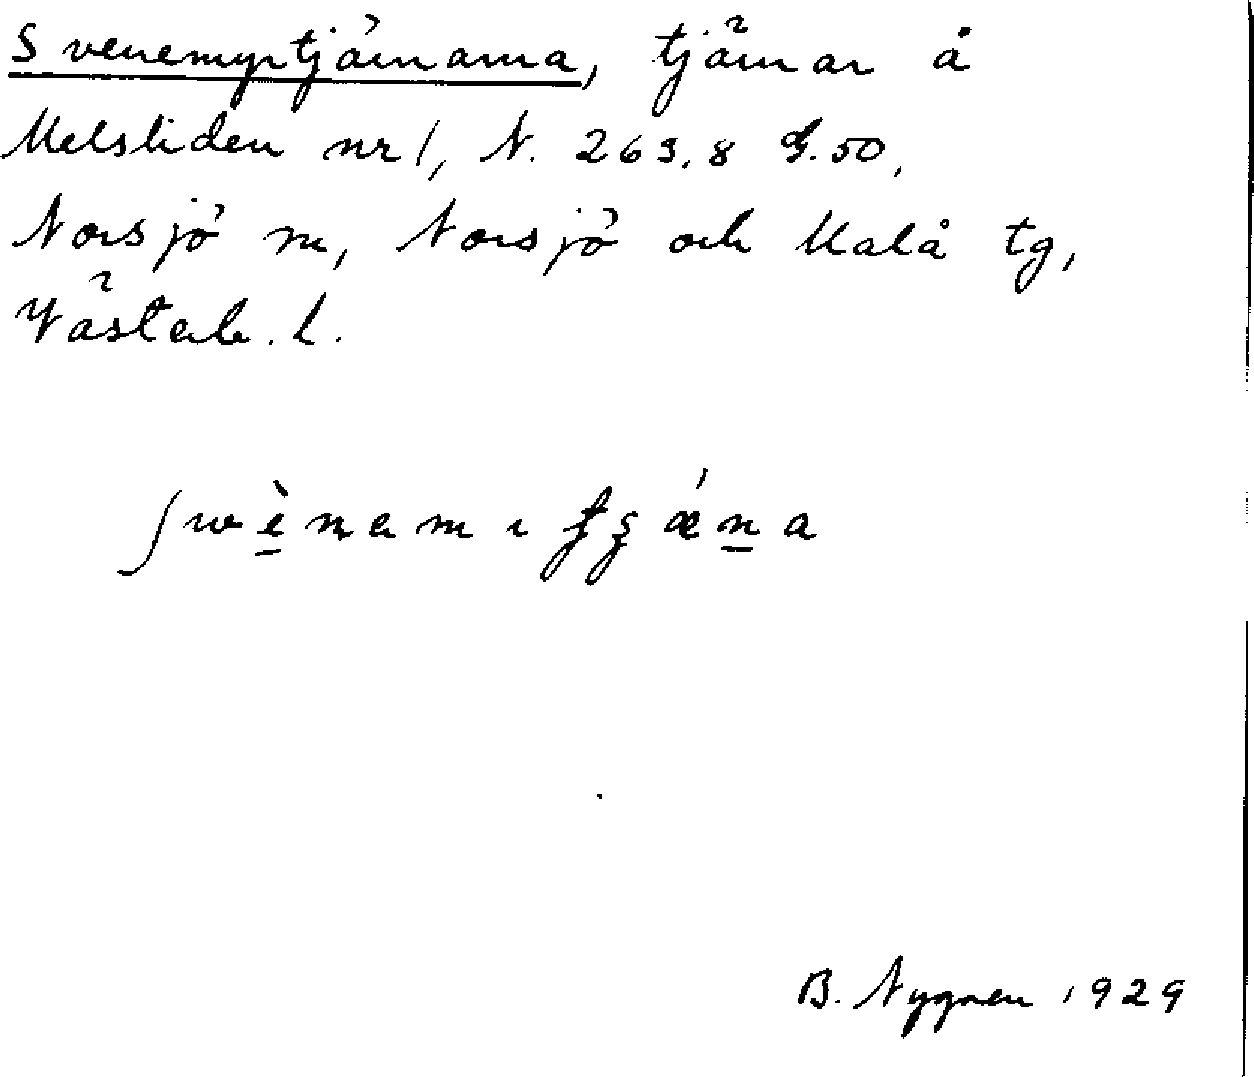 Svenemyrtjärnarna, tjärnar å
Melsliden nr 1, N. 263.8 Ö.50,
Norsjö sn, Norsjö och Malå tg,
Västerb. l.
B. Nygren 1929